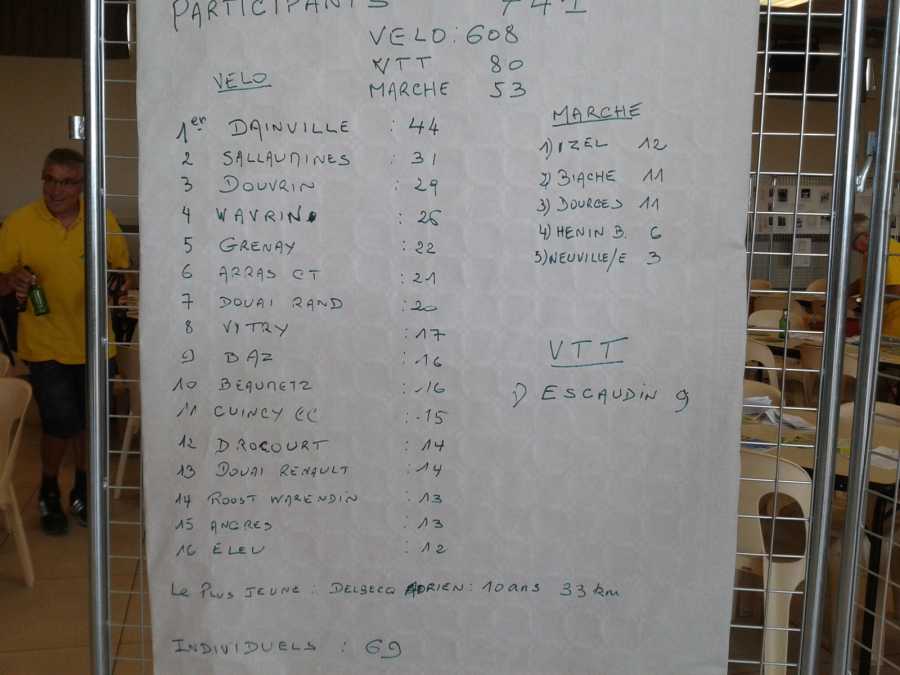 PARTICIPANTS 741
VELO : 608
VTT 80
MARCHE 53
VELO
1er DAINVILLE : 44
2 SALLAUMINES : 31
3 DOUVRIN : 29
4 WAVRIN : 26
5 GRENAY : 22
6 ARRAS CT : 21
7 DOUAI RAND : 20
8 VITRY : 17
9 BAZ : 16
10 BEAUMETZ : 16
11 CUINCY CC : 15
12 DROCOURT : 14
13 DOUAI RENAULT : 14
14 ROOST WARENDIN : 13
15 ANGRES : 13
16 ELEU : 12
MARCHE
1) IZEL 12
2) BIACHE 11
3) DOURGES 11
4) HENIN B. 6
5) NEUVILLE/E 3
VTT
1) ESCAUDIN 9
Le Plus JEUNE : DELBECQ ADRIEN : 10 ans 33 km
INDIVIDUELS : 69